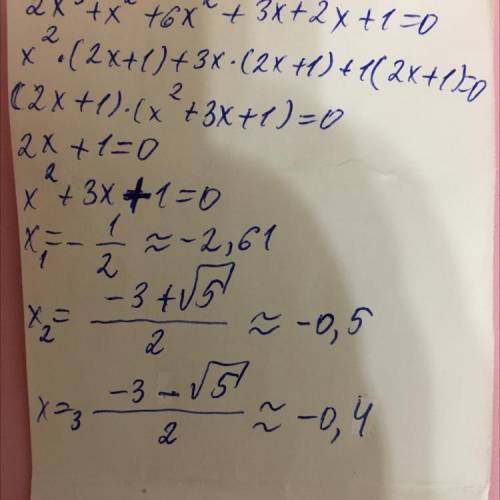 2x³+x²+6x²+3x+2x+1=0
x²·(2x+1)+3x·(2x+1)+1(2x+1)=0
(2x+1)·(x²+3x+1)=0
2x+1=0
x²+3x+1=0
x₁=-1/2≈-2,61
x₂=(-3+√5)/2≈-0,5
x=₃(-3-√5)/2≈-0,4